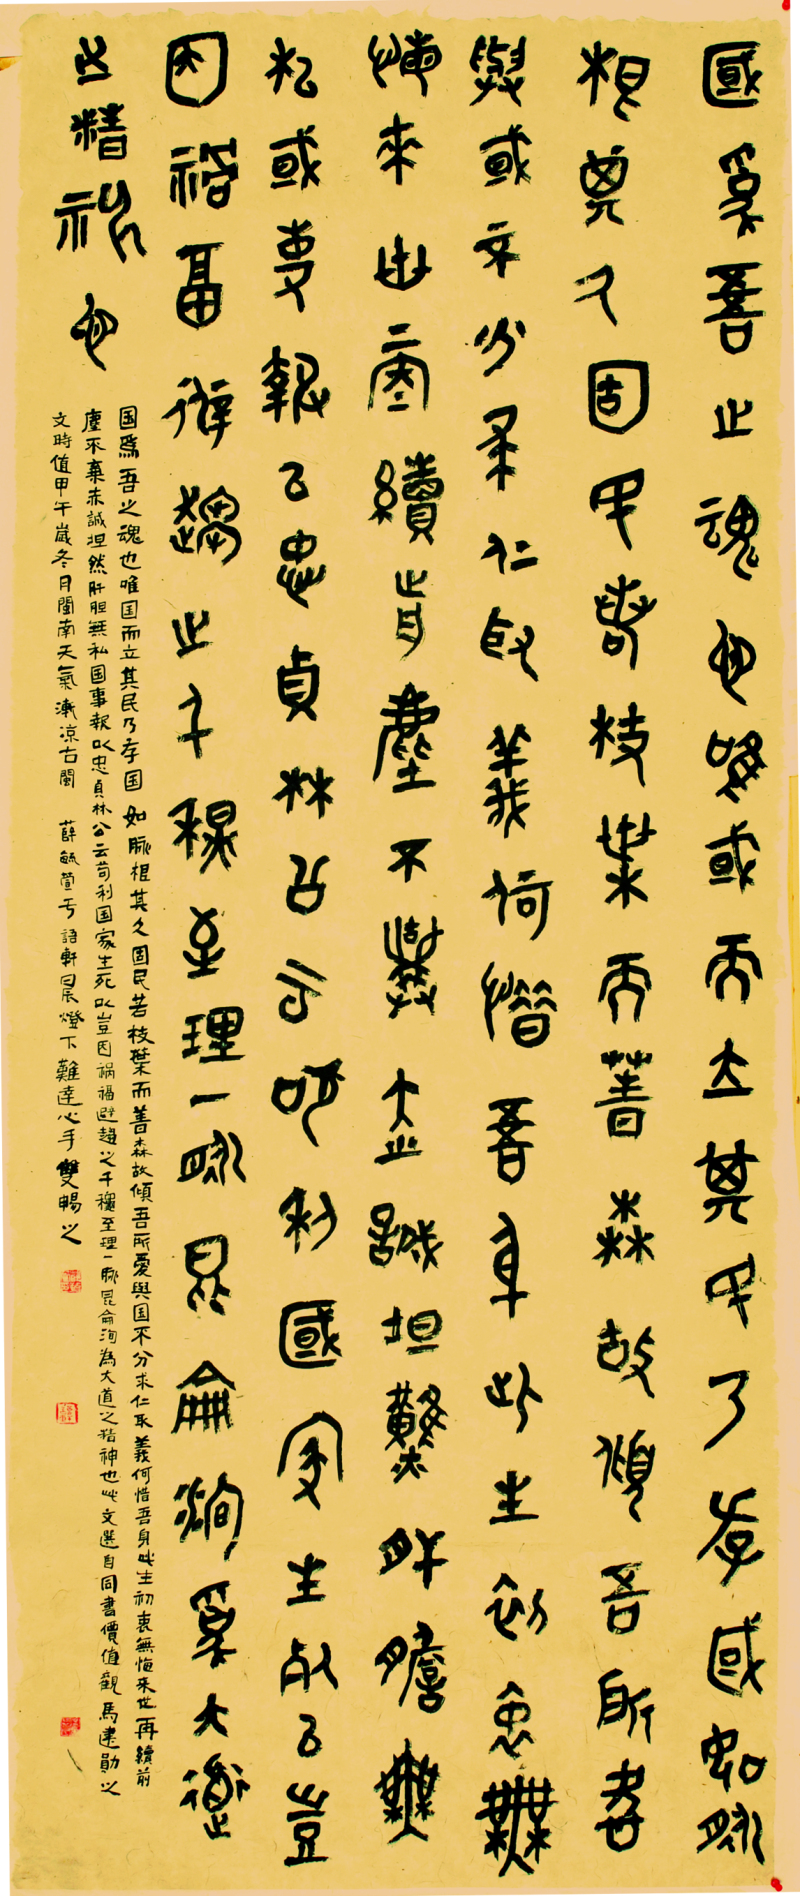 國為吾之魂也唯或而立其民乃存國如脈
根其久固民若枝葉而善森故傾吾所愛
與或不分求仁取義何惜吾身此生初衷無
悔來世再續前塵不棄赤誠坦然肝膽無
私或事報以忠貞林公云苟利國家生死以豈
因禍福避趨之千穐至理一脈昆侖洵為大道
之精神也
国為吾之魂也唯国而立其民乃存国如脈根其久固民若枝葉而善森故傾吾所愛與国不分求仁取義何惜吾身此生初衷無悔来世再續前
塵不棄赤誠坦然肝胆無私国事報以忠貞林公云苟利国家生死以豈因祸福避趨之千穐至理一脈昆侖洵為大道之精神也此文選自同書價值觀馬建勛之
文時值甲午歲冬月閩南天氣漸凉古閩 薛毓萱于語軒晨燈下難達心手雙暢之